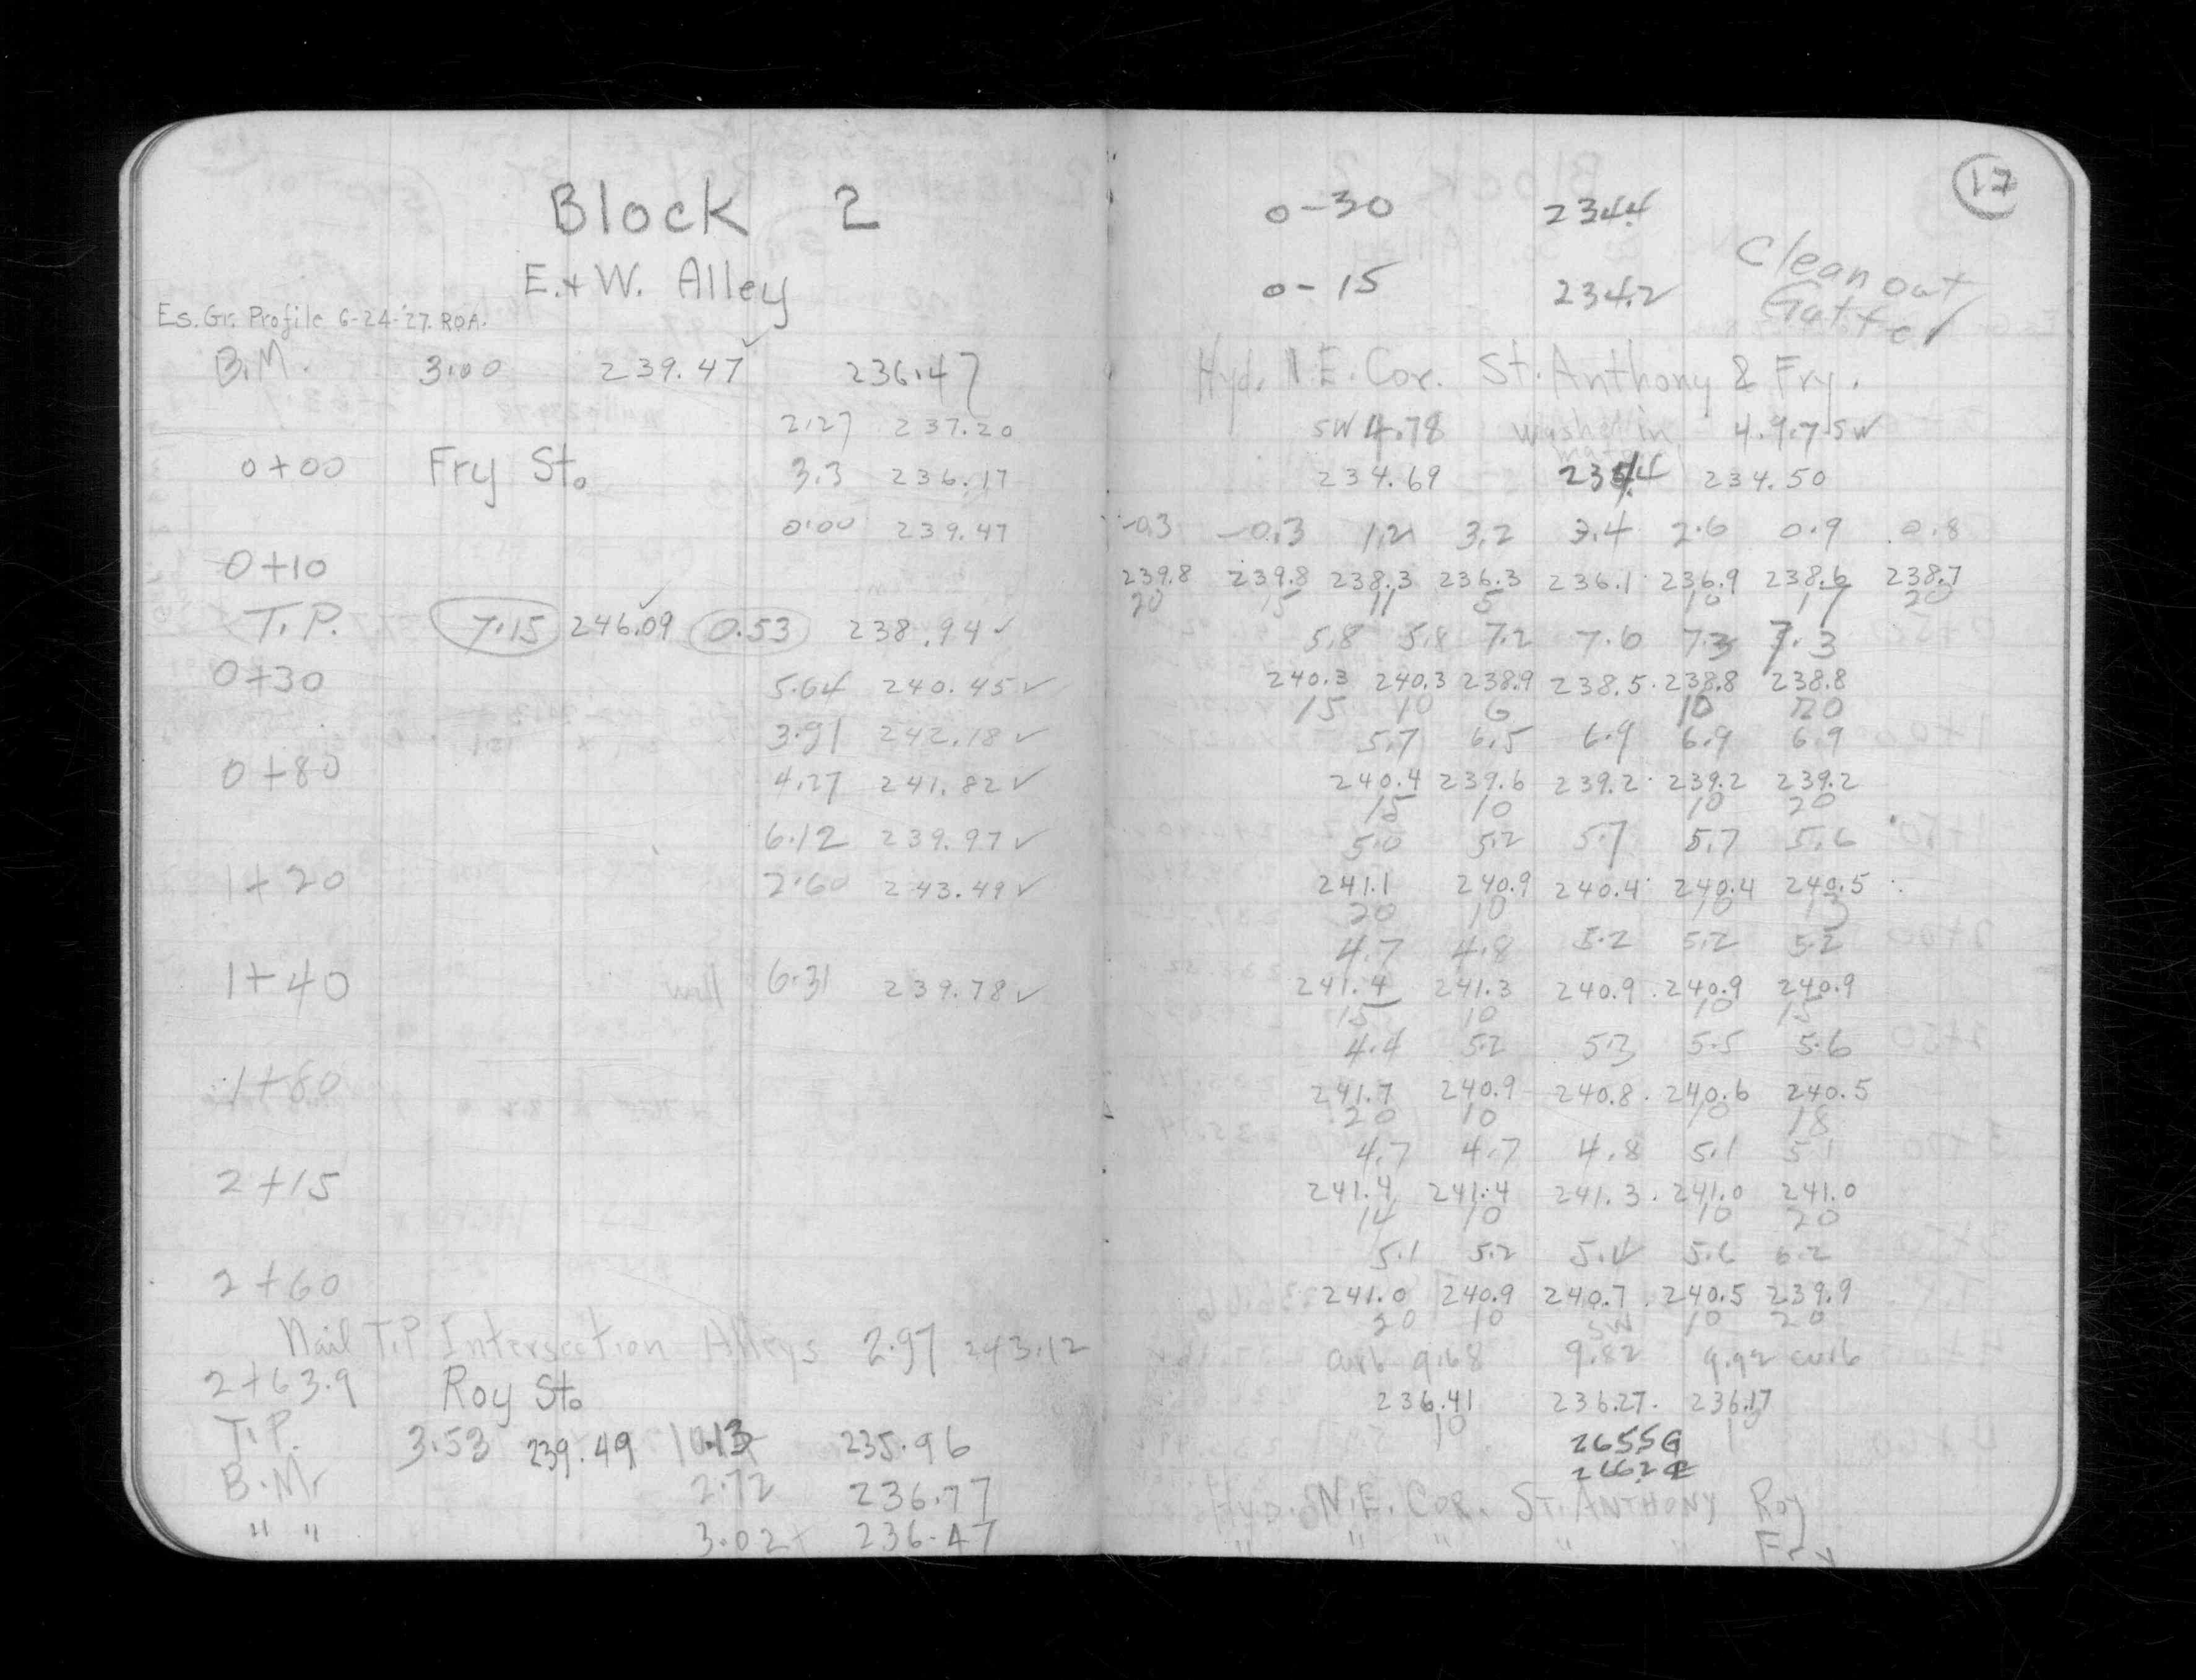 Block 2
E. + W. Alley
Es. Gr. Profile 6-24-'27. ROA.
B.M. 3.00 239.47 ✓ 236.47
2.27 237.20
0+00 Fry St. 3.3 236.17
0.00 239.47
0+10
T.P. 7.15 246.09 ✓ 0.53 238.94 ✓
0+30 5.64 240.45 ✓
3.91 242.18 ✓
0+80 4.27 241.82 ✓
6.12 239.97 ✓
1+20 2.60 243.49 ✓
1+40 wall 6.31 239.78 ✓
1+80
2+15
2+60
Nail T.P. Intersection Alleys 2.97 243.12
2+63.9 Roy St.
T.P. 3.53 239.49 10.13 235.96
B.M. 2.72 236.77
" " 3.02+ 236.47
17
0-30 234.4
0-15 234.2 Clean out
Gutter
Hyd. N.E. Cor. St. Anthony & Fry.
SW 4.78 washed in 4.97 SW
234.69 234.50
-0.3 -0.3 1.2 3.2 3.4 2.6 0.9 0.8
239.8 239.8 238.3 236.3 236.1 236.9 238.6 238.7
20 15 11 5 10 17 20
5.8 5.8 7.2 7.6 7.3 7.3
240.3 240.3 238.9 238.5 238.8 238.8
15 10 6 10 20
5.7 6.5 6.9 6.9 6.9
240.4 239.6 239.2 239.2 239.2
15 10 10 20
5.0 5.2 5.7 5.7 5.6
241.1 240.9 240.4 240.4 240.5
20 10 10 13
4.7 4.8 5.2 5.2 5.2
241.4 241.3 240.9 240.9 240.9
15 10 10 15
4.4 5.2 5.3 5.5 5.6
241.7 240.9 240.8 240.6 240.5
20 10 10 18
4.7 4.7 4.8 5.1 5.1
241.4 241.4 241.3 241.0 241.0
14 10 10 20
5.1 5.2 5.4 5.6 6.2
241.0 240.9 240.7 240.5 239.9
20 10 SW 10 20
curb 9.68 9.82 9.92 curb
236.41 236.27 236.17
10
2655G
2662
Hyd. N.E. Cor. St. Anthony Roy
" " " " " Fry